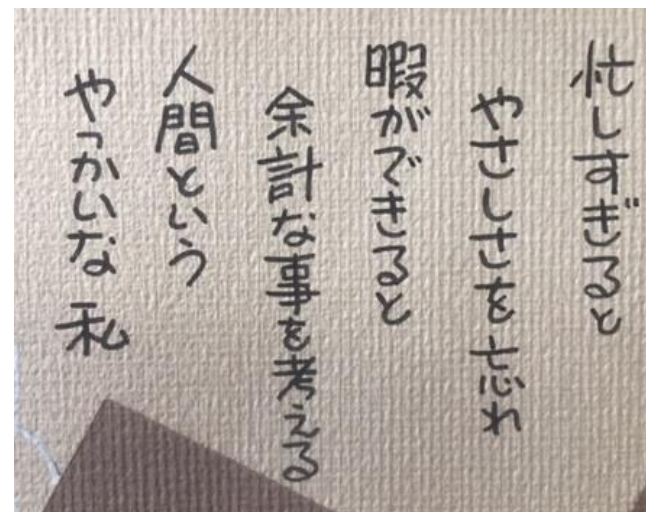 忙しすぎると
やさしさを忘れ
暇ができると
余計な事を考える
人間という
やっかいな 私